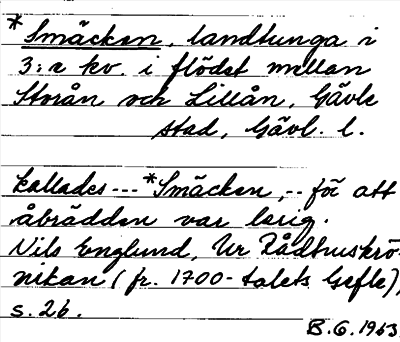 *Smäcken, landtunga i
3:e kv. i flödet mellan
Storån och Lillån, Gävle
stad, Gävl. l.
kallades --- *Smäcken, -- för att
åbrädden var lerig.
Nils Englund, Ur Rådhuskrö-
nikan (fr. 1700-talets Gefle),
s. 26.
B.G. 1963